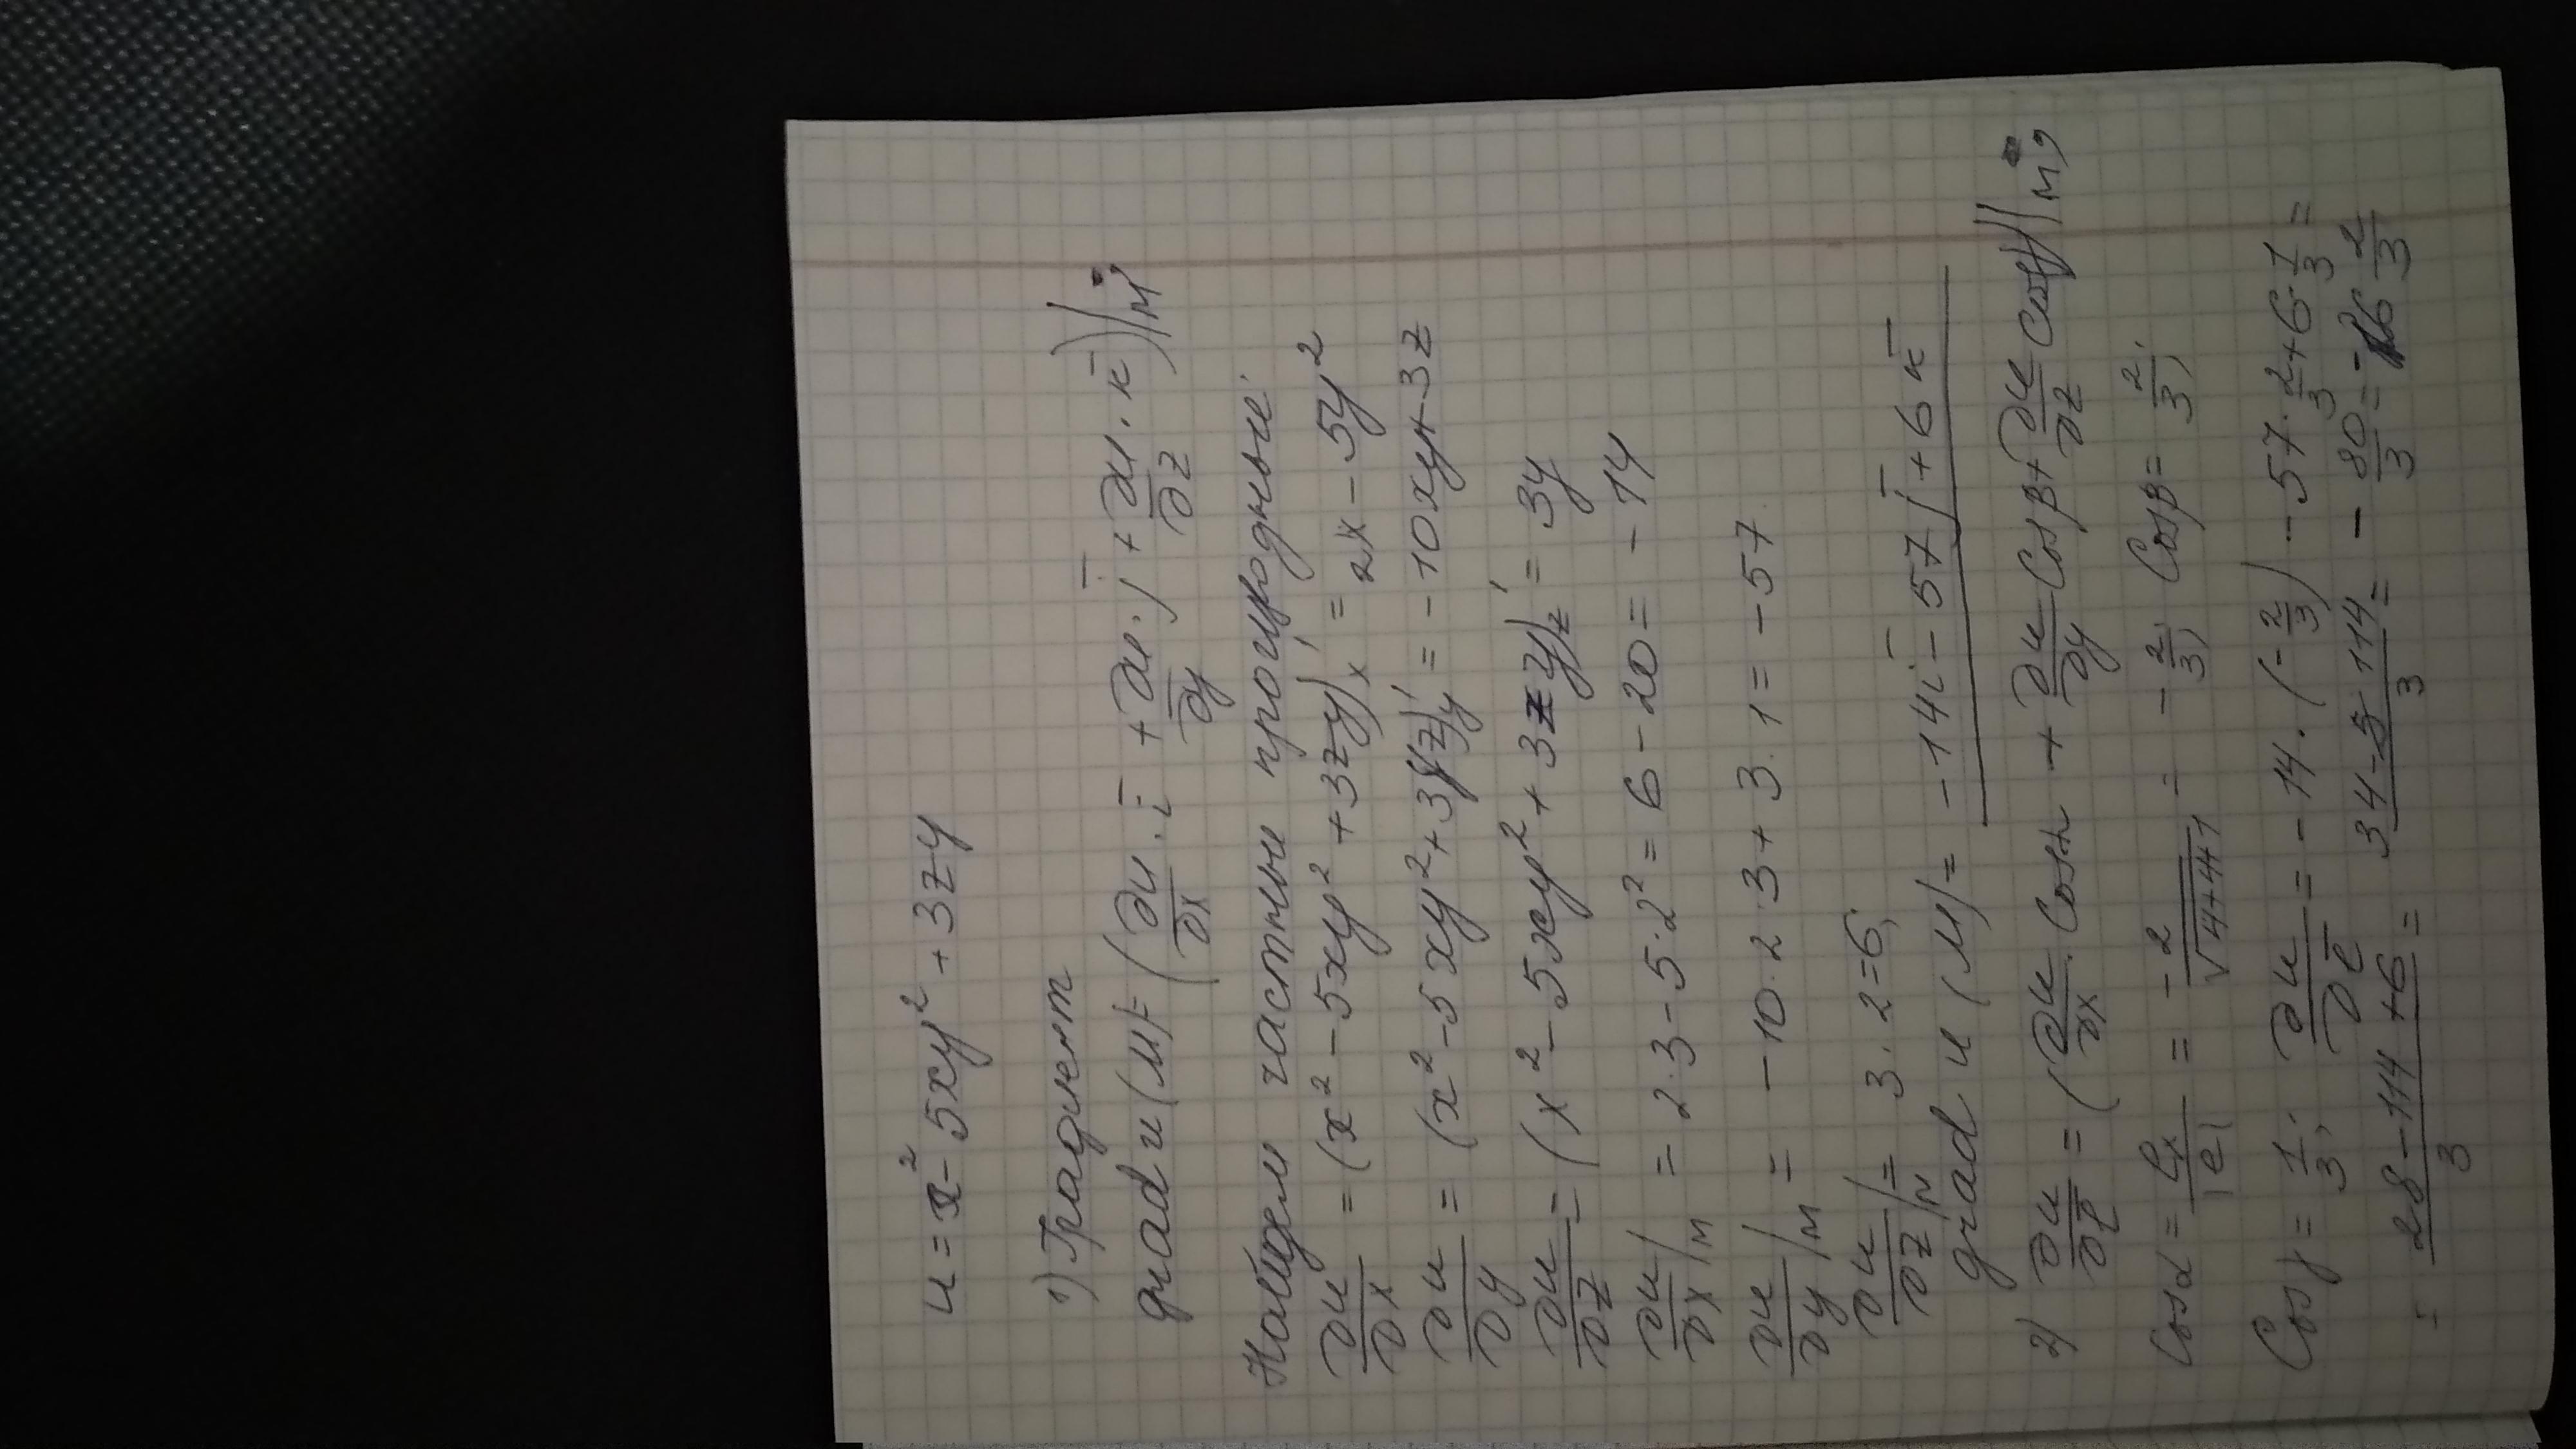 u = x² - 5xy² + 3zy
1) Градиент
grad u(M) = (∂u/∂x · i̅ + ∂u/∂y · j̅ + ∂u/∂z · k̅)|м;
Найдем частные производные:
∂u/∂x = (x² - 5xy² + 3zy)'x = 2x - 5y²
∂u/∂y = (x² - 5xy² + 3yz)'y = -10xy + 3z
∂u/∂z = (x² - 5xy² + 3zy)'z = 3y
∂u/∂x|м = 2·3 - 5·2² = 6 - 20 = -14
∂u/∂y|м = -10·2·3 + 3·1 = -57
∂u/∂z|м = 3·2 = 6;
grad u (M) = -14i̅ - 57j̅ + 6k̅
2) ∂u/∂l̅ = (∂u/∂x · Cosα + ∂u/∂y Cosβ + ∂u/∂z Cosγ)|м;
Cosα = lx/|l| = -2/√4+4+1 = -2/3; Cosβ = 2/3;
Cosγ = 1/3; ∂u/∂l̅ = -14·(-2/3) - 57·2/3 + 6·1/3 =
= 28 - 114 + 6/3 = 34 - 114/3 = -80/3 = -26 2/3